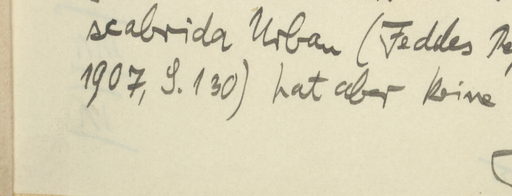 scabrida Urban (Feddes Re
1907, S. 130) hat aber keine